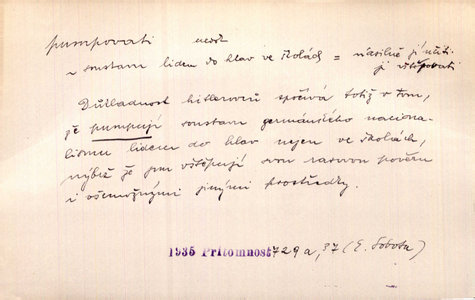 pumpovati nedok
~ soustavu lidem do hlav ve školách = násilně ji učiti
ji vštěpovati
Důkladnost hitlerovců spočívá totiž v tom,
že pumpují soustavu germánského naciona-
lismu lidem do hlav nejen ve školách,
nýbrž že jim vštěpují svou rasovou pověru
i všemožnými jinými prostředky.
1935 Přítomnost 729 a, 37 (E. Sobota)